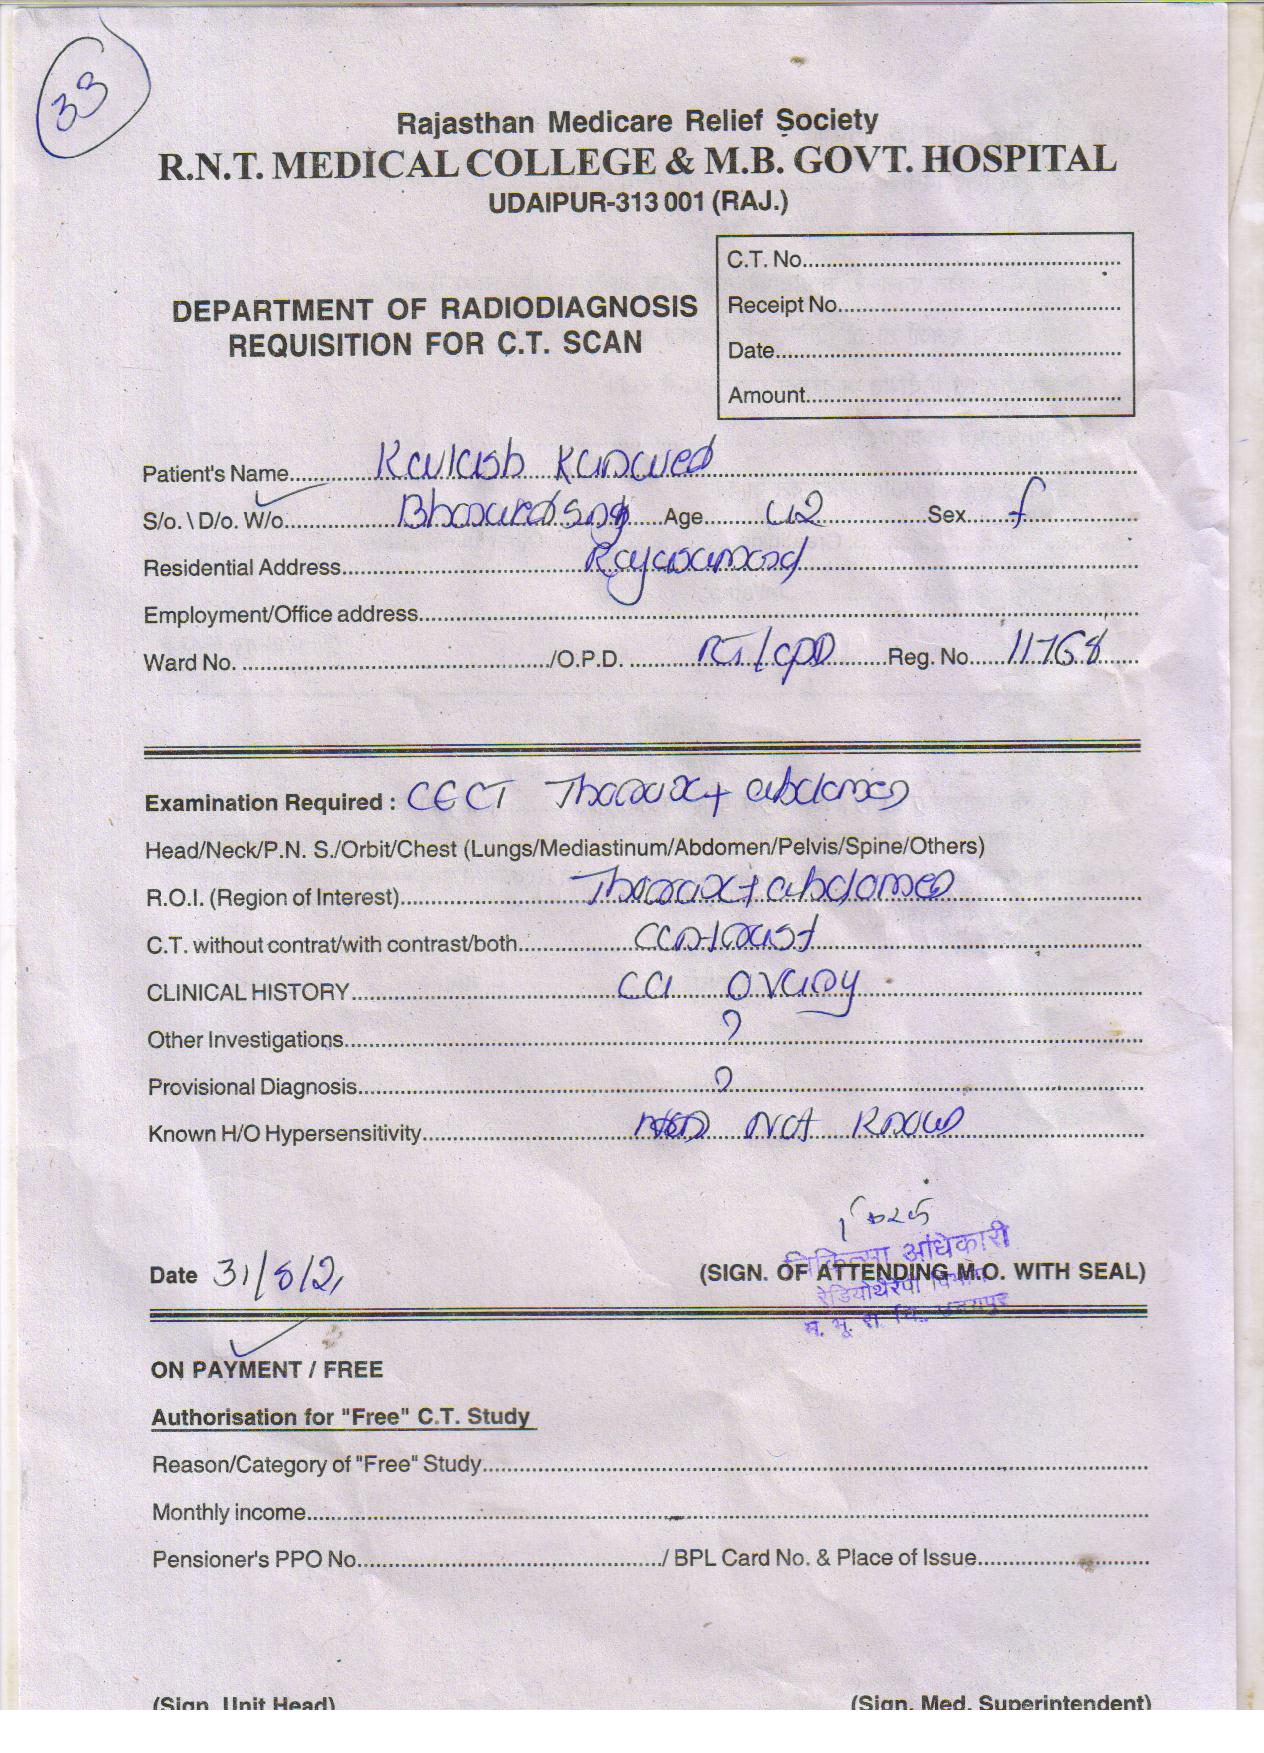 33
Rajasthan Medicare Relief Society
R.N.T. MEDICAL COLLEGE & M.B. GOVT. HOSPITAL
UDAIPUR-313 001 (RAJ.)
C.T. No.
Receipt No.
Date
Amount
DEPARTMENT OF RADIODIAGNOSIS
REQUISITION FOR C.T. SCAN
Patient's Name Kailash
S/o. \ D/o. W/o. Age 42 Sex f
Residential Address
Employment/Office address
Ward No. /O.P.D. RT/OPD Reg. No. 11768
Examination Required : CECT Thorax + abdomen
Head/Neck/P.N. S./Orbit/Chest (Lungs/Mediastinum/Abdomen/Pelvis/Spine/Others)
R.O.I. (Region of Interest) Thorax + abdomen
C.T. without contrat/with contrast/both contrast
CLINICAL HISTORY Ca Ovary
Other Investigations ?
Provisional Diagnosis ?
Known H/O Hypersensitivity Not Know
चिकित्सा अधिकारी
Date 31/8/21 (SIGN. OF ATTENDING M.O. WITH SEAL)
रेडियोथैरेपी विभाग
म. भू. रा. चि. उदयपुर
ON PAYMENT / FREE
Authorisation for "Free" C.T. Study
Reason/Category of "Free" Study
Monthly income
Pensioner's PPO No. / BPL Card No. & Place of Issue
(Sign. Unit Head) (Sign. Med. Superintendent)